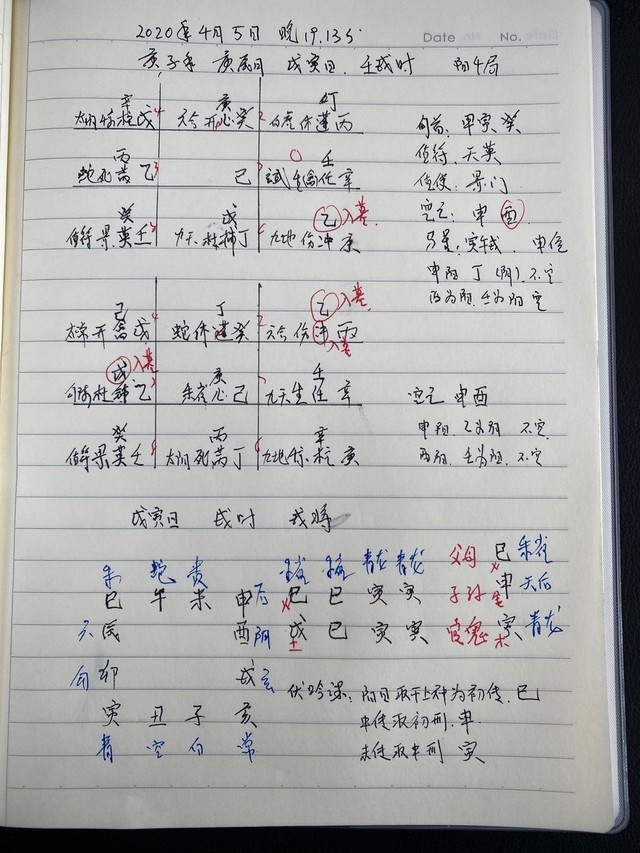 2020年4月5日 晚19.13分
Date No.
庚子年 庚辰月 戊寅日. 壬戌时 阳4局
辛 庚 丁
太阴 柱 戊 4 六合 开 心 癸 2 白虎 休 蓬 丙
旬首: 甲寅 癸
丙 壬
蛇 死 芮 乙 3 己 生 任 辛
值符: 天英
值使: 景门
癸 戊 乙 入墓
值符 景 英 壬 九天 杜 辅 丁 九地 伤 冲 庚
空亡: 申 酉
马星: 寅午戌 申位
申阳 丁(阴). 不空
酉为阴, 壬为阳 空
己 丁 乙 入墓
开 禽 戊 4 蛇 休 蓬 癸 2 六合 伤 冲 丙
入墓
戊 入墓 庚 壬
杜 辅 乙 3 朱雀 心 己 九天 生 任 辛
空亡 申酉
癸 丙 辛
值符 景 英 壬 太阴 死 芮 丁 九地 柱 庚
不空
壬为阳. 不空
戊寅日 戌时 戌将
朱 蛇 贵 朱雀 朱雀 青龙 青龙 父母 巳 朱雀
巳 午 未 申 后 巳 巳 寅 寅 子孙 申 金 天后
六 辰 酉 阴 戊 土 巳 寅 寅 官鬼 寅 木 青龙
勾 卯 戌 玄
伏吟课: 阳日取干上神为初传, 巳
寅 丑 子 亥
中传取初刑, 申
青 空 白 常
末传取中刑 寅